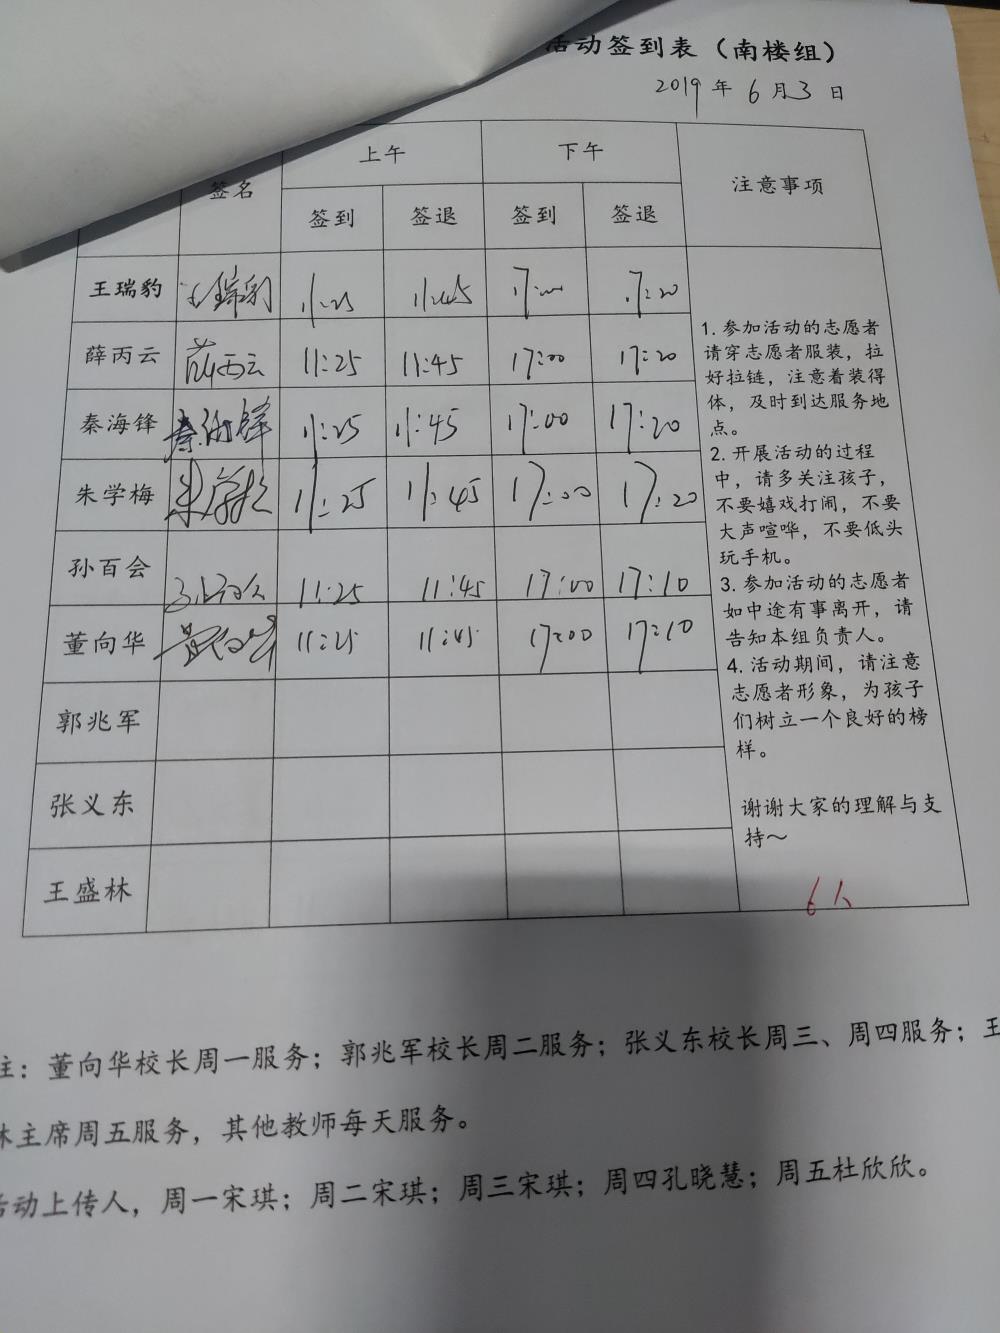 活动签到表（南楼组）
2019年6月3日
签名 上午 下午 注意事项
签到 签退 签到 签退
王瑞豹 王瑞豹 11:25 11:45 17:00 17:20
薛丙云 薛丙云 11:25 11:45 17:00 17:20
秦海锋 秦海锋 11:25 11:45 17:00 17:20
朱学梅 11:25 11:45 17:00 17:20
孙百会 11:25 11:45 17:00 17:10
董向华 董向华 11:25 11:45 17:00 17:10
郭兆军
张义东
王盛林
1. 参加活动的志愿者
请穿志愿者服装，拉
好拉链，注意着装得
体，及时到达服务地
点。
2. 开展活动的过程
中，请多关注孩子，
不要嬉戏打闹，不要
大声喧哗，不要低头
玩手机。
3. 参加活动的志愿者
如中途有事离开，请
告知本组负责人。
4. 活动期间，请注意
志愿者形象，为孩子
们树立一个良好的榜
样。
谢谢大家的理解与支
持～
6人
注：董向华校长周一服务；郭兆军校长周二服务；张义东校长周三、周四服务；王
林主席周五服务，其他教师每天服务。
活动上传人，周一宋琪；周二宋琪；周三宋琪；周四孔晓慧；周五杜欣欣。